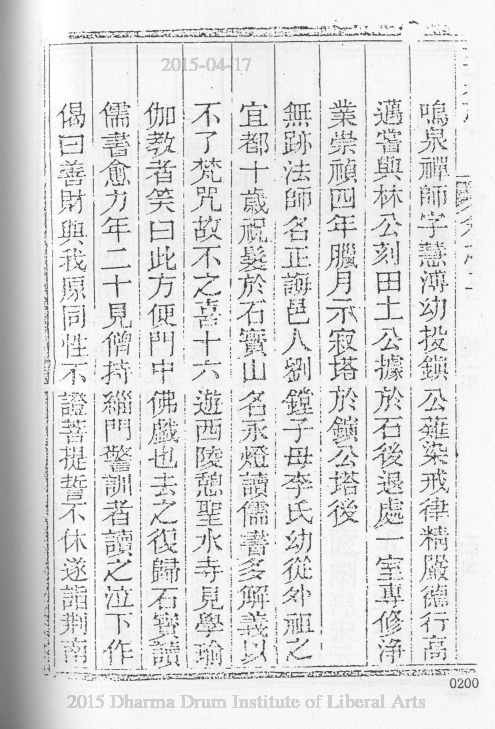 2015-04-17
鳴泉禪師字慧溥幼投鎮公薙染戒律精嚴德行高
邁嘗與林公刻田土公據於石後退處一室專修淨
業崇禎四年臘月示寂塔於鎮公塔後
無跡法師名正誨邑人劉鏜子母李氏幼從外祖之
宜都十歲祝髮於石寶山名永燈讀儒書多解義以
不了梵咒故不之喜十六遊西陵憩聖水寺見學瑜
伽教者笑曰此方便門中佛戲也去之復歸石寶讀
儒書愈力年二十見僧持緇門警訓者讀之泣下作
偈曰善財與我原同性不證菩提誓不休遂詣荆南
0200
2015 Dharma Drum Institute of Liberal Arts